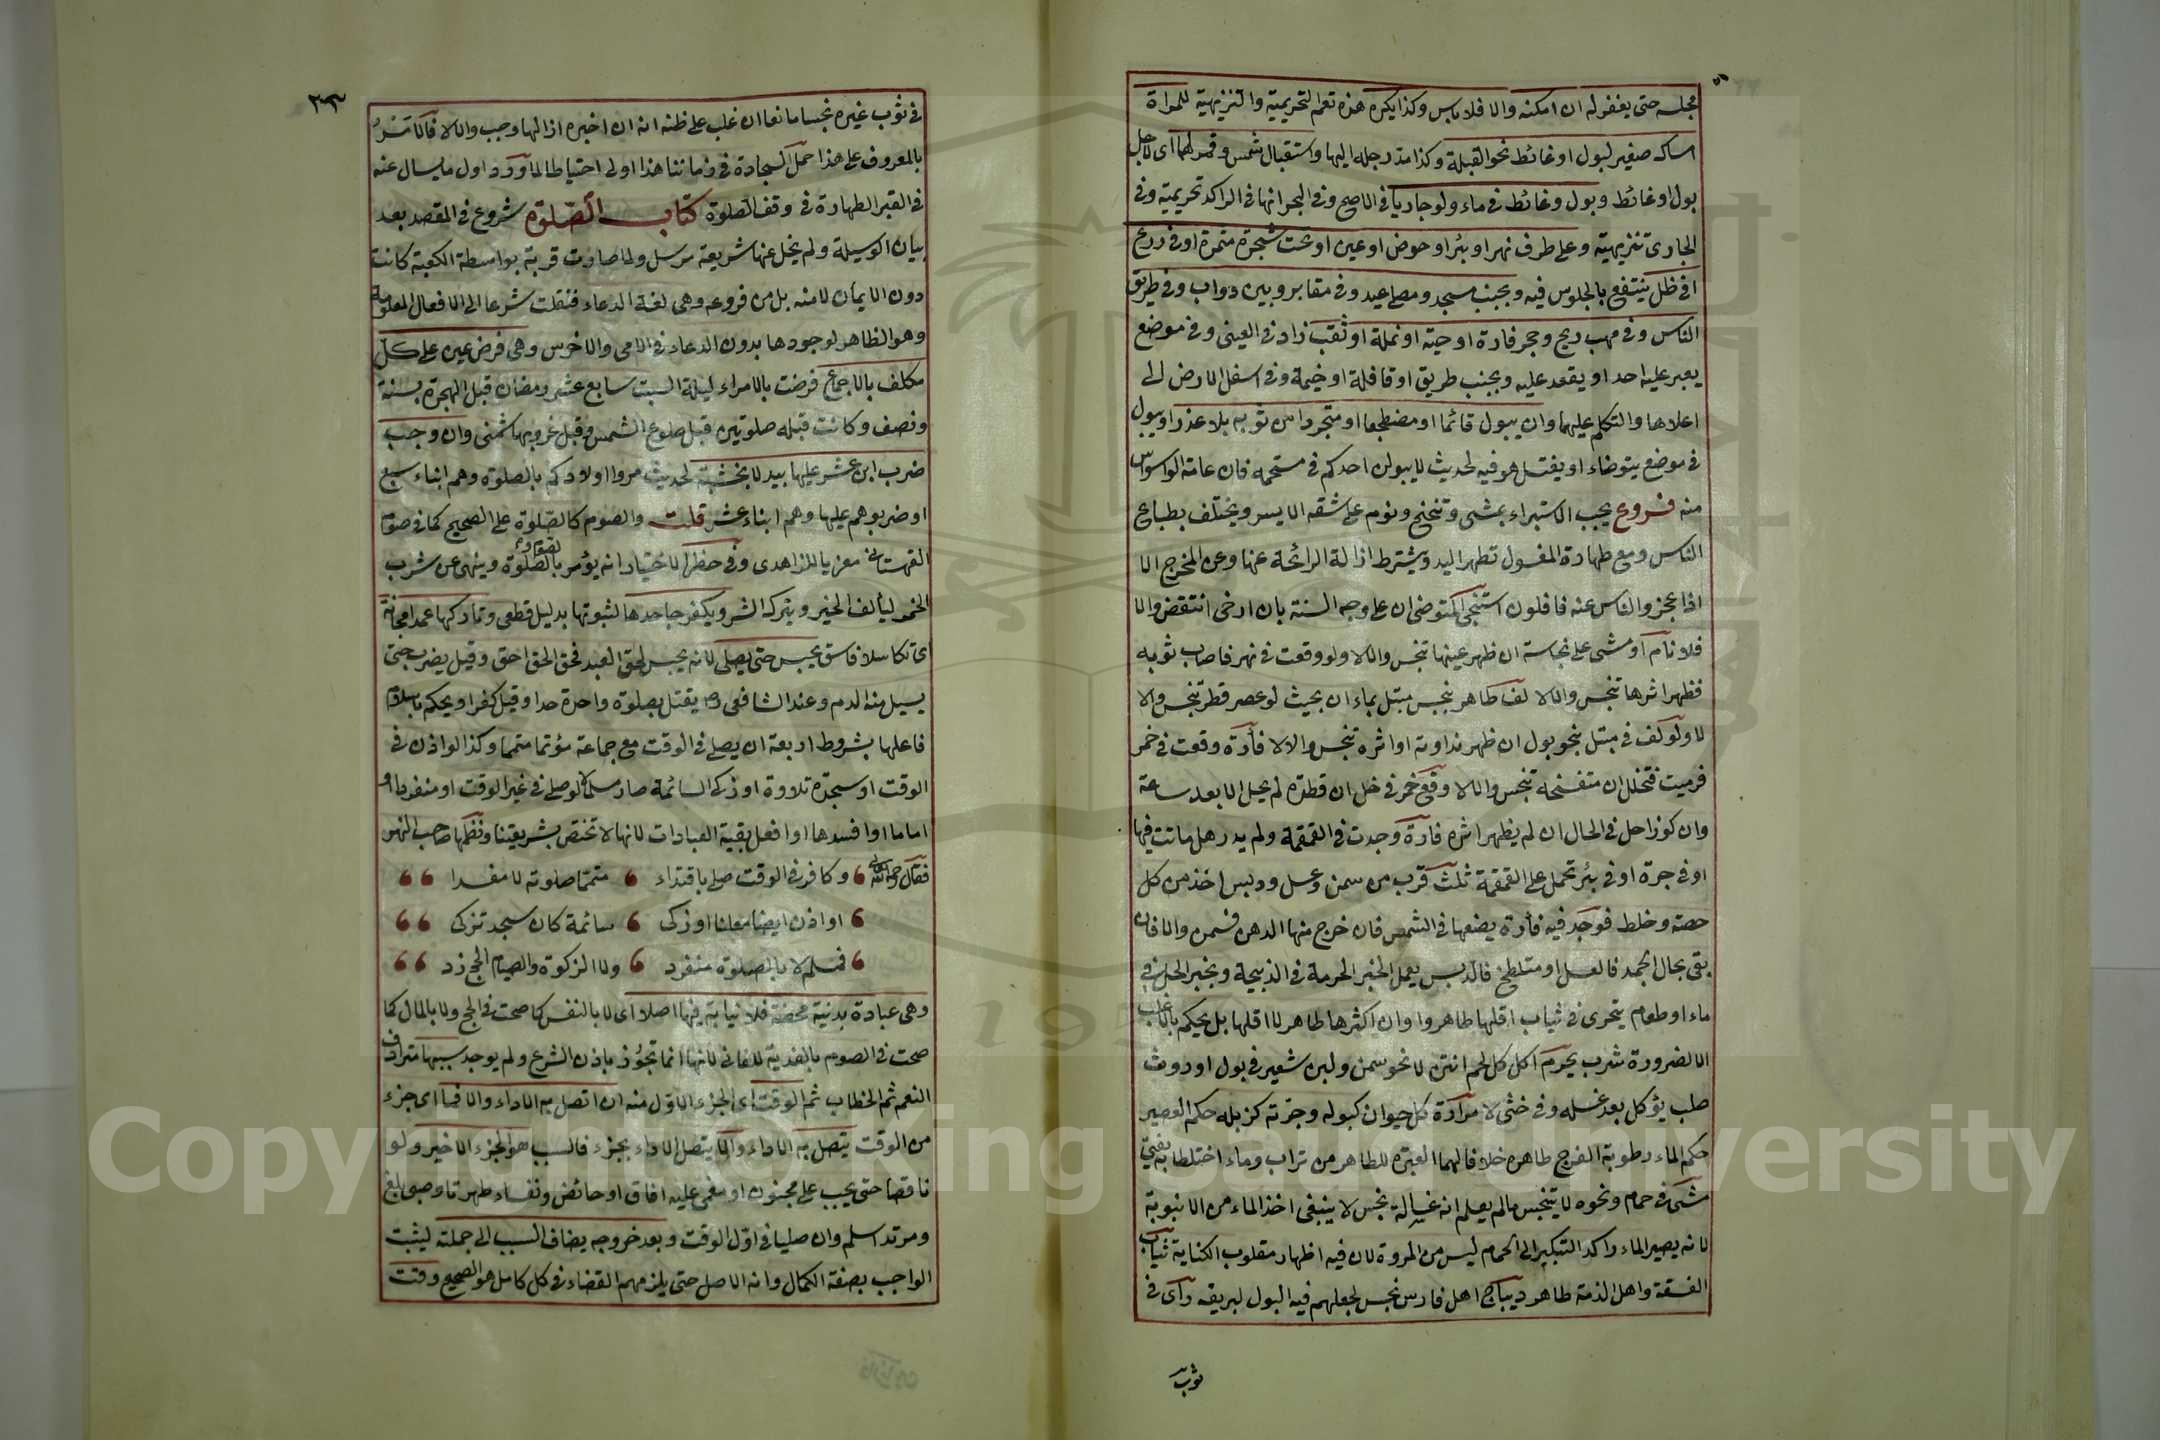 مجلسه حتى يغفر له ان امكنه والا فلا باس وكذا يكره هذه تعم التحريمية والتنزيهية للمراة
امساك صغير لبول او غائط نحو القبلة وكذا مد رجله اليها واستقبال شمس وقمر لهما اى لاجل
بول او غائط وبول وغائط فى ماء ولو جاريا فى الاصح وفى البحر انها فى الراكد تحريمية وفى
الجارى تنزيهية وعلى طرف نهر او بئر او حوض او عين او تحت شجرة مثمرة او فى زرع
او فى ظل ينتفع بالجلوس فيه وبجنب مسجد ومصلى عيد وفى مقابر وبين دواب وفى طريق
الناس وفى مهب ريح وجحر فارة او حية او نملة او ثقب زاد فى العينى وفى موضع
يعبر عليه احد او يقعد عليه وبجنب طريق او قافلة او خيمة وفى اسفل الارض الى
اعلاها والتكلم عليهما وان يبول قائما او مضطجعا او متجردا من ثوبه بلا عذر او يبول
فى موضع يتوضاء او يغتسل هو فيه لحديث لا يبولن احدكم فى مستحمه فان عامة الوسواس
منه فروع يجب الاستبراء بمشى وتنحنح ونوم على شقه الايسر ويختلف بطباع
الناس ومع طهارة المغسول تطهر اليد ويشترط ازالة الرائحة عنها وعن المخرج الا
اذا عجز والناس عنه غافلون استنجى المتوضى ان على وجه السنة بان ارخى انتقض والا
فلا نام او مشى على نجاسة ان ظهر عينها تنجس والا لا ولو وقعت فى نهر فاصاب ثوبه
فظهر اثرها تنجس والا لا لف طاهر بنجس مبتل بماء ان بحيث لو عصر قطر تنجس والا
لا ولو لف فى مبتل بنحو بول ان ظهر نداوته او اثره تنجس والا لا فأرة وقعت فى خمر
فرميت فتخلل ان متفسخة تنجس والا لا وقع خمر فى خل ان قطرة لم يحل الا بعد ساعة
وان كوزا حل فى الحال ان لم يظهر اثره فارة وجدت فى القمقمة ولم يدر هل ماتت فيها
او فى جرة او فى بئر تحمل على القمقمة ثلث قرب من سمن وعسل ودبس اخذ من كل
حصة وخلط فوجد فيه فأرة يضعها فى الشمس فان خرج منها الدهن فسمن والا فان
بقى بحال الجمد فالعسل او متلطخ فالدبس يعمل بخبر الحرمة فى الذبيحة وبخبر الحل فى
ماء او طعام يتحرى فى ثياب اقلها طاهر وان اكثرها طاهر لا اقلها بل يحكم بالاغلب
الا لضرورة شرب يحرم اكل كل لحم انتن لا نحو سمن ولبن شعير فى بول او روث
صلب يؤكل بعد غسله وفى خثى لا مرارة كل حيوان كبوله وجرته كزبله حكم العصير
حكم الماء رطوبة الفرج طاهرة خلافا لهما العبرة للطاهر من تراب وماء اختلطا به يفتى
مشى فى حمام ونحوه لا يتنجس مالم يعلم انه غسالة نجس لا ينبغى اخذ الماء من الانبوبة
لانه يصير الماء راكدا التبكير الى الحمام ليس من المروة لان فيه اظهار مقلوب الكناية ثياب
الفسقة واهل الذمة طاهر ديباج اهل فارس نجس لجعلهم فيه البول لبريقه رأى فى
ثوب
فى ثوب غيره نجسا مانعا ان غلب على ظنه انه ان اخبره ازالها وجب والا لا فالامر
بالمعروف على هذا حمل السجادة فى زماننا هذا اولى احتياطا لما ورد اول ما يسال عنه
فى القبر الطهارة فى وقف الصلوة كتاب الصلوة شروع فى المقصد بعد
بيان الوسيلة ولم يخل عنها شريعة مرسل ولما صارت قربة بواسطة الكعبة كانت
دون الايمان لا منه بل من فروعه وهى لغة الدعاء فنقلت شرعا الى الافعال المعلومة
وهو الظاهر لوجودها بدون الدعاء فى الامى والاخرس وهى فرض عين على كل
مكلف بالاجماع فرضت بالاسراء ليلة السبت سابع عشر رمضان قبل الهجرة بسنة
ونصف وكانت قبله صلوتين قبل طلوع الشمس وقبل غروبها شمنى وان وجب
ضرب ابن عشر عليها بيد لا بخشبة لحديث مروا اولادكم بالصلوة وهم ابناء سبع
او ضربوهم عليها وهم ابناء عشر قلت والصوم كالصلوة على الصحيح كما فى صوم
القهستانى معزيا للزاهدى وفى حظر الاختيار انه يؤمر بالصوم والصلوة وينهى عن شرب
الخمر ليألف الخير ويترك الشر ويكفر جاحدها لثبوتها بدليل قطعى وتاركها عمدا مجانة
اى تكاسلا فاسق يحبس حتى يصلى لانه يحبس لحق العبد فحق الحق احق وقيل يضرب حتى
يسيل منه الدم وعند الشافعى رح يقتل بصلوة واحدة حدا وقيل كفرا ويحكم باسلام
فاعلها بشروط اربعة ان يصلى فى الوقت مع جماعة مؤتما متمما وكذا لو اذن فى
الوقت او سجد تلاوة او زكى السائمة صار مسلما لا لو صلى فى غير الوقت او منفردا او
اماما او افسدها او فعل بقية العبادات لانها لا تختص بشريعتنا ونظمها صاحب النهر
فقال وكافر فى الوقت صلى باقتداء متمما صلوته لا مفسدا
او اذن ايضا معلنا او زكى سائمة كان سجد تزكى
فمسلم لا بالصلوة منفرد ولا الزكوة والصيام الحج زد
وهى عبادة بدنية محضة فلا نيابة فيها اصلا اى لا بالنفس كما صحت فى الحج ولا بالمال كما
صحت فى الصوم بالفدية للفانى لانها انما تجوز باذن الشرع ولم يوجد سببها ترادف
النعم ثم الخطاب ثم الوقت اى الجزء الاول منه ان اتصل به الاداء والا فما اى جزء
من الوقت يتصل به الاداء والا يتصل الاداء بجزء فالسبب هو الجزء الاخير ولو
ناقصا حتى يجب على مجنون او مغمى عليه افاق او حائض ونفساء طهرتا وصبى بلغ
ومرتد اسلم وان صليا فى اول الوقت وبعد خروجه يضاف السبب الى جملته ليثبت
الواجب بصفة الكمال وانه الاصل حتى يلزمهم القضاء فى كل كامل هو الصحيح وقت
Copyright © King Saud University